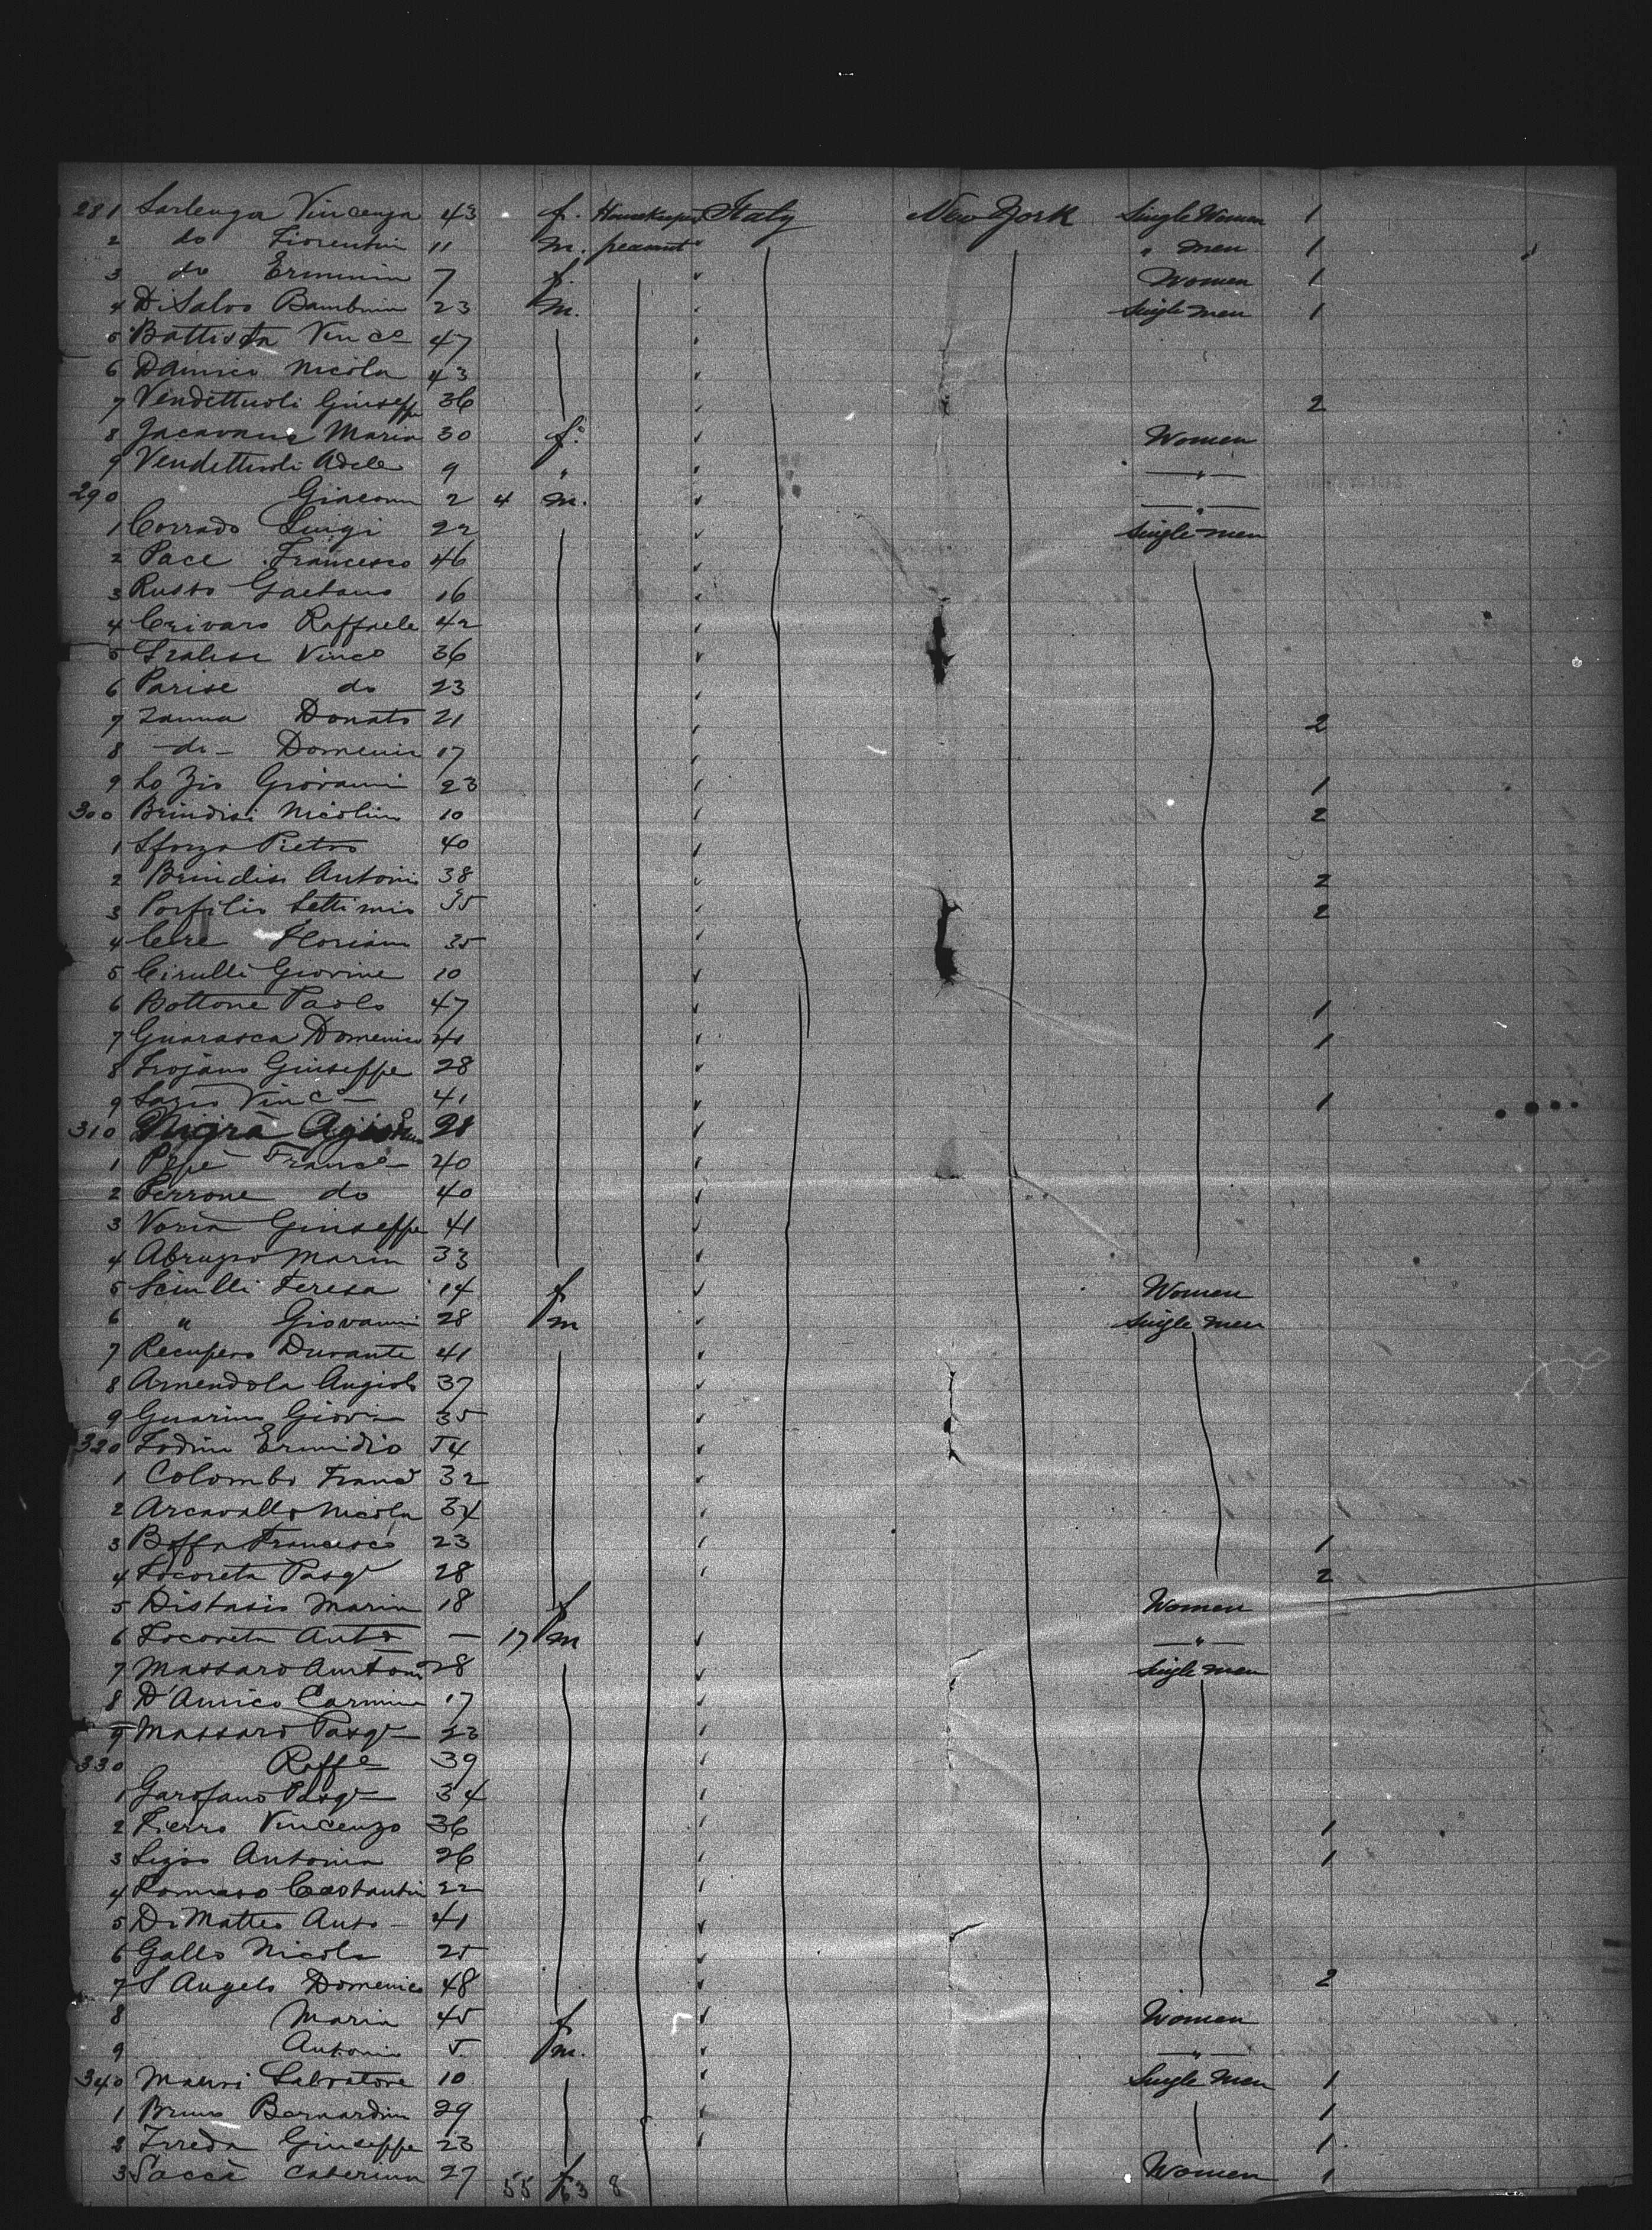 281 Sarlenga Vincenza 43 f. Housekeeper Italy New York Single Women 1
2 do Fiorentin 11 m. peasant " men 1
3 do Erminia 7 f. Women 1
4 DiSalvo Bambina 23 m. Single men 1
5 Battista Vinco 47
6 Damico Nicola 43
7 Vendittuoli Giuseppe 36 2
8 Maria 30 f. Women
9 Vendittuoli Adele 9 " "
290 Giacomo 2 4 m. "
1 Corrado Luigi 22 Single men
2 Pace Francesco 46
3 Russo Gaetano 16
4 Crivaro Raffaele 42
5 Vinco 36
6 Parise do 23
7 Zanna Donato 21 2
8 do Domenic 17
9 Lo Zio Giovanni 23 1
300 Brindisi Nicolino 10 2
1 Sforza Pietro 40
2 Brindisi Antonio 38 2
3 Porfilio Settimio 35 2
4 Cere Florian 35
5 Cirulli Giovine 10
6 Bottone Paolo 47 1
7 Guarasca Domenico 41 1
8 Trojano Giuseppe 28
9 Lazio Vinco 41 1
310 Nigra 28
1 Pepe Franco 40
2 Perrone do 40
3 Voria Giuseppe 41
4 Abruzzo Maria 33
5 Sciulli Teresa 14 f Women
6 " Giovanni 28 m Single men
7 Recupero Durante 41
8 Amendola Angiolo 37
9 Guarino Giovi 35
320 Todini Ermidio 54
1 Colombo Franco 32
2 Arcavallo Nicola 34
3 Boffa Francesco 23 1
4 Locoreta Pasq 28 2
5 Distasio Maria 18 f Women
6 Locoreta Anto — 17 m "
7 Massaro Antonio 28 Single men
8 D'Amico Carmine 17
9 Massaro Pasq 23
330 Raffe 39
1 Garofano Pasq 34
2 Fierro Vincenzo 36 1
3 Antonia 26 1
4 Tomaso Costantin 22
5 Di Matteo Anto 41
6 Gallo Nicola 25
7 S Angelo Domenico 48 2
8 Maria 45 f Women
9 Antonio 5 m. "
340 Mauri Salvatore 10 Single Men 1
1 Bruno Bernardino 29 1
2 Giuseppe 23 1
3 Sacca Caterina 27 f Women 1
55 63 8